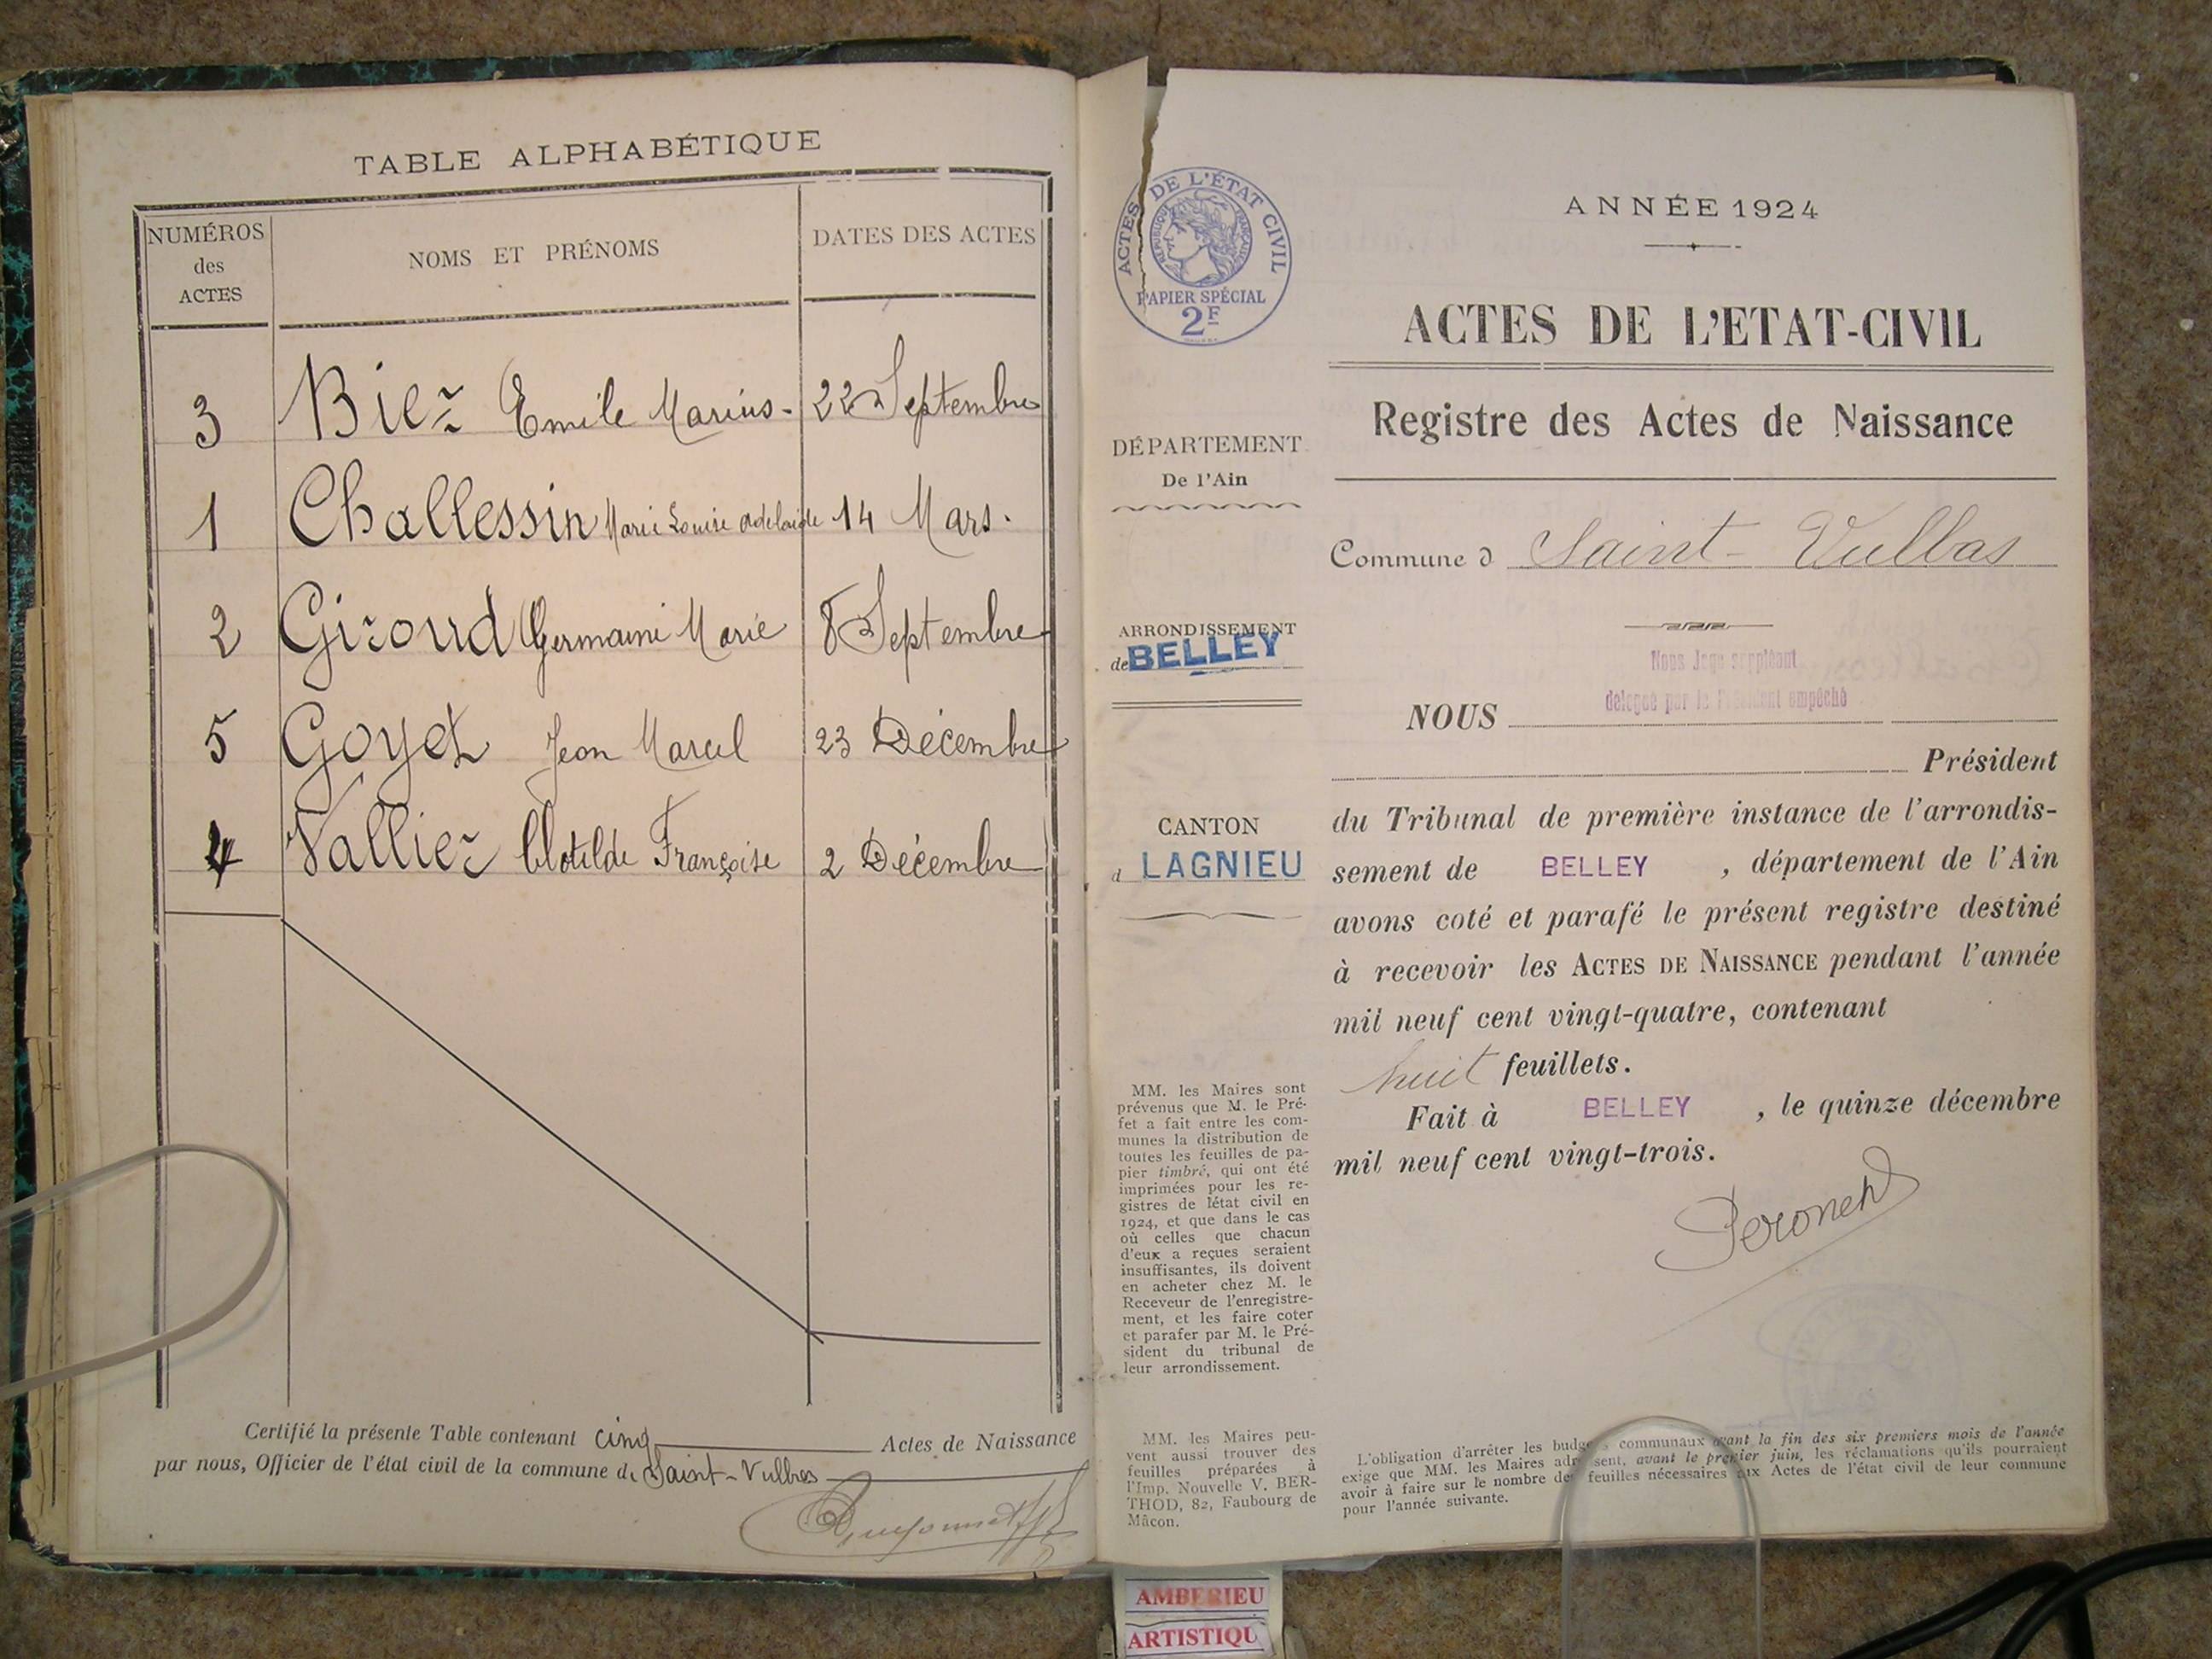 TABLE ALPHABÉTIQUE
NUMÉROS des ACTES NOMS ET PRÉNOMS DATES DES ACTES
3 Biez Emile Marius - 22 Septembre
1 Challessin Marie Louise Adelaide 14 Mars.
2 Giroud Germaine Marie 8 Septembre
5 Goyet Jean Marcel 23 Décembre
4 Vallier Clotilde Françoise 2 Décembre
Certifié la présente Table contenant cinq Actes de Naissance
par nous, Officier de l'état civil de la commune de Saint-Vulbas
ACTES DE L'ÉTAT CIVIL
RÉPUBLIQUE FRANÇAISE
PAPIER SPÉCIAL
2F
DÉPARTEMENT
De l'Ain
ARRONDISSEMENT
de BELLEY
CANTON
d LAGNIEU
MM. les Maires sont
prévenus que M. le Pré-
fet a fait entre les com-
munes la distribution de
toutes les feuilles de pa-
pier timbré, qui ont été
imprimées pour les re-
gistres de létat civil en
1924, et que dans le cas
où celles que chacun
d'eux a reçues seraient
insuffisantes, ils doivent
en acheter chez M. le
Receveur de l'enregistre-
ment, et les faire coter
et parafer par M. le Pré-
sident du tribunal de
leur arrondissement.
MM. les Maires peu-
vent aussi trouver des
feuilles préparées à
l'Imp. Nouvelle V. BER-
THOD, 82, Faubourg de
Mâcon.
ANNÉE 1924
ACTES DE L'ETAT-CIVIL
Registre des Actes de Naissance
Commune d Saint-Vulbas
Nous Juge suppléant
délégué par le Président empêché
NOUS
Président
du Tribunal de première instance de l'arrondis-
sement de BELLEY , département de l'Ain
avons coté et parafé le présent registre destiné
à recevoir les ACTES DE NAISSANCE pendant l'année
mil neuf cent vingt-quatre, contenant
huit feuillets.
Fait à BELLEY , le quinze décembre
mil neuf cent vingt-trois.
L'obligation d'arrêter les budgets communaux avant la fin des six premiers mois de l'année
exige que MM. les Maires adressent, avant le premier juin, les réclamations qu'ils pourraient
avoir à faire sur le nombre des feuilles nécessaires aux Actes de l'état civil de leur commune
pour l'année suivante.
AMBERIEU
ARTISTIQU